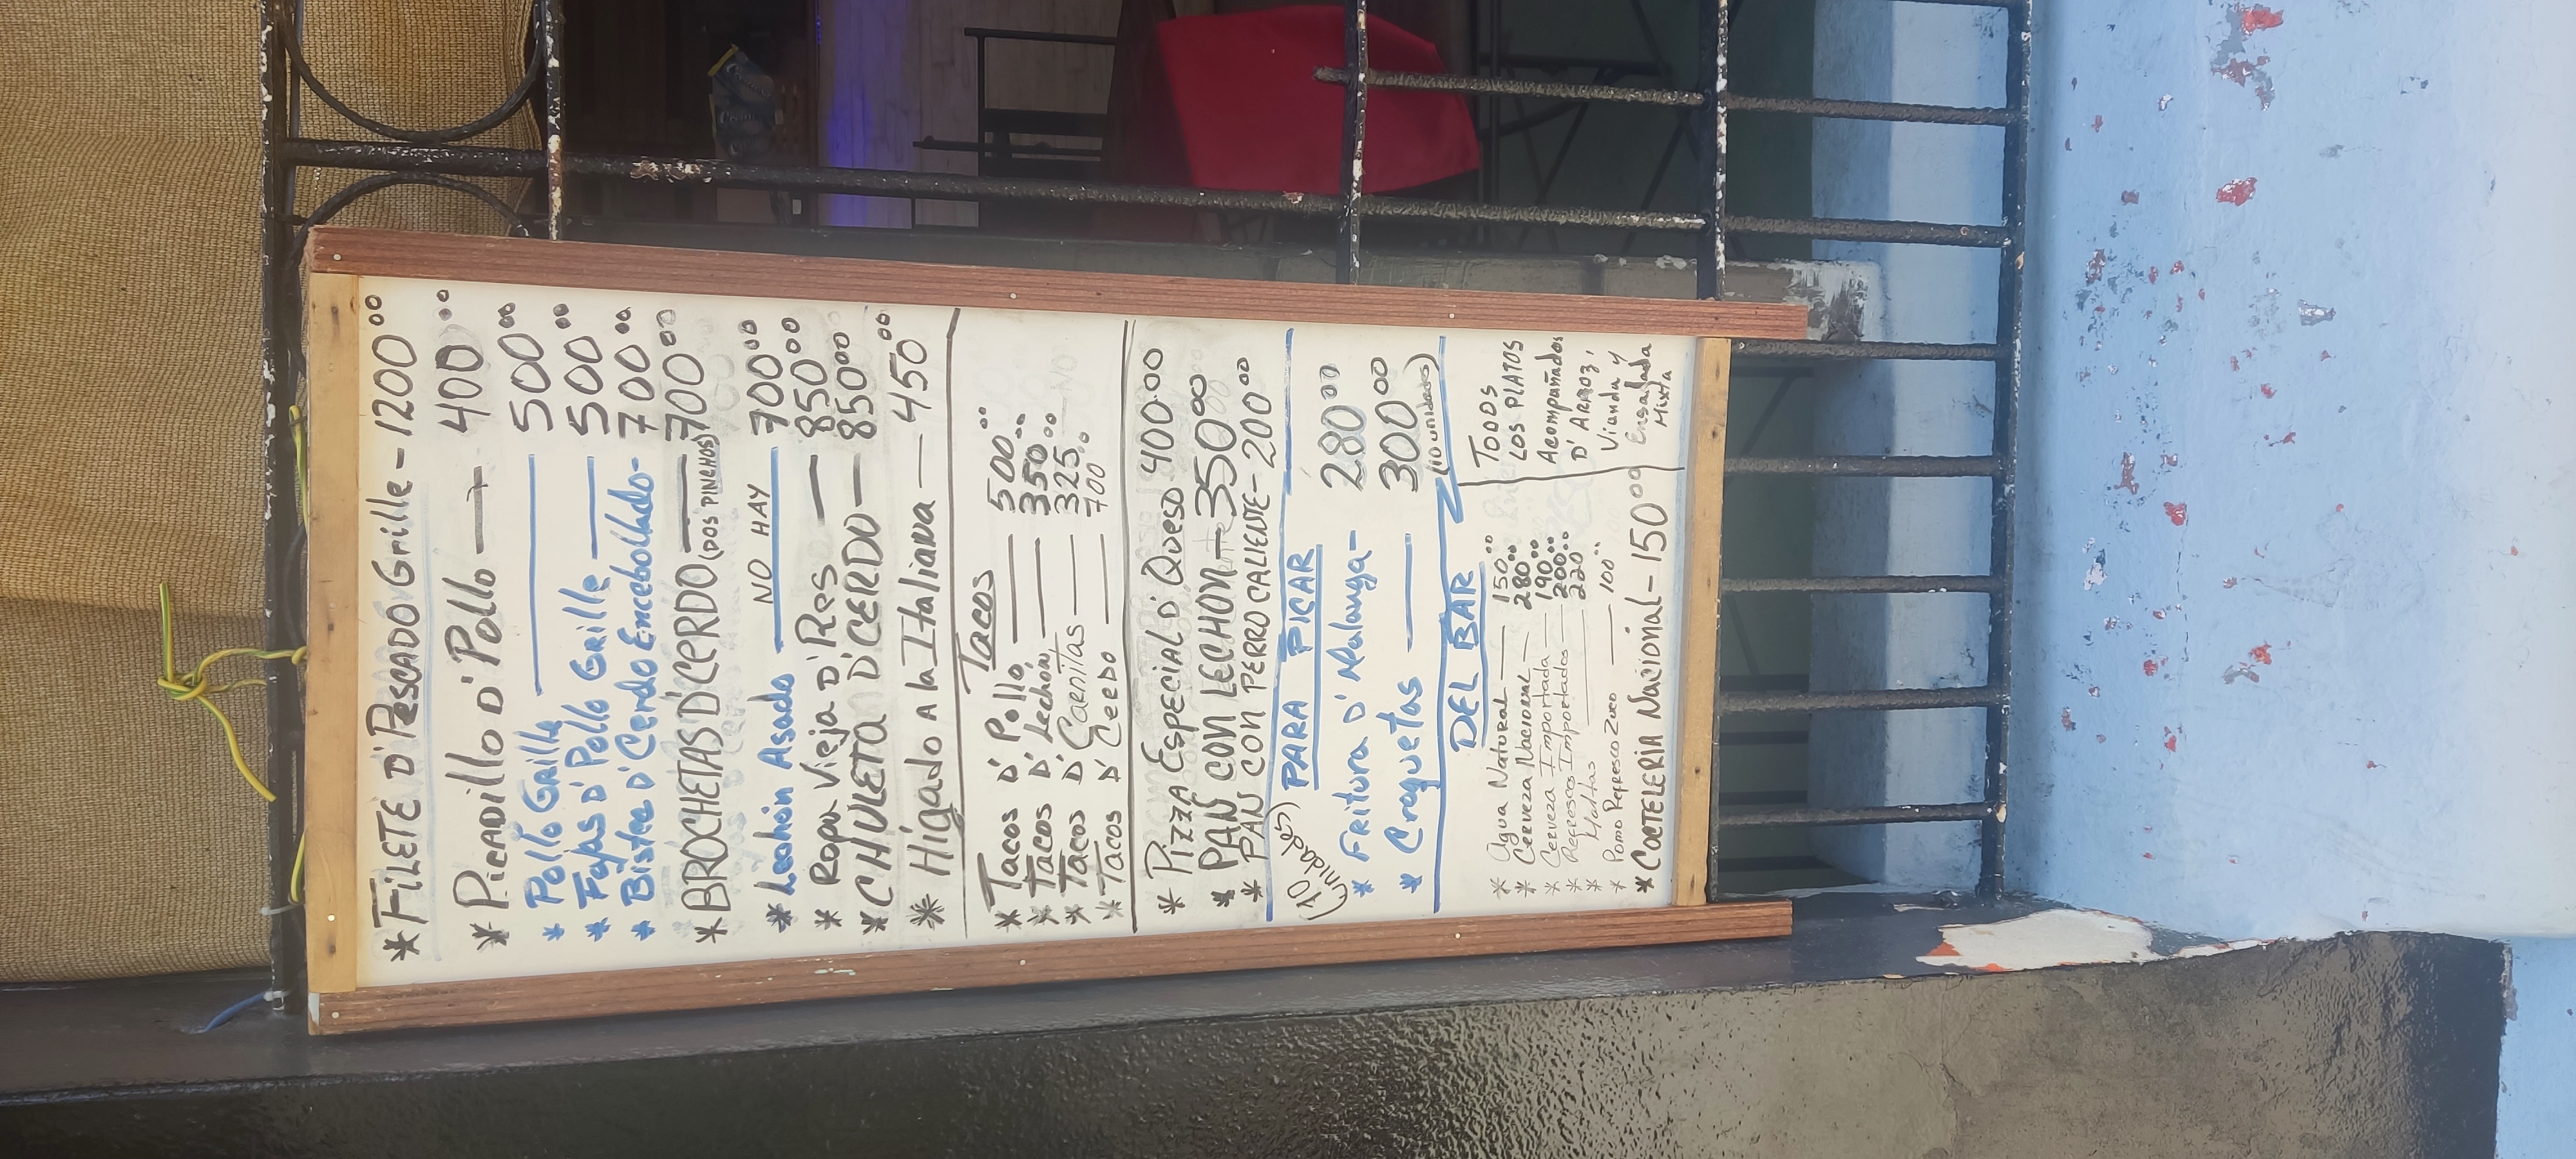 * FILETE D' PESCADO Grille - 1200⁰⁰
* Picadillo D' Pollo — 400⁰⁰
* Pollo Grille — 500⁰⁰
* Fajas D' Pollo Grille — 500⁰⁰
* Bistec D' Cerdo Encebollado - 700⁰⁰
* BROCHETAS D' CERDO (DOS PINCHOS) — 700⁰⁰
* Lechón Asado — NO HAY — 700⁰⁰
* Ropa Vieja D' Res — 850⁰⁰
* CHULETA D' CERDO — 850⁰⁰
* Hígado A la Italiana — 450⁰⁰
Tacos
* Tacos D' Pollo — 500⁰⁰
* Tacos D' Lechón — 350⁰⁰
* Tacos D' Carnitas — 325⁰⁰
* Tacos D' Cerdo — 700⁰⁰
* Pizza Especial D' Queso 400.00
* PAN CON LECHON — 350⁰⁰
* PAN CON PERRO CALIENTE - 200⁰⁰
PARA PICAR
(10 unidades)
* Fritura D' Malanga - 280⁰⁰
* Croquetas — 300⁰⁰
(10 unidades)
DEL BAR
* Agua Natural — 150⁰⁰
* Cerveza Nacional — 280⁰⁰
* Cerveza Importada — 190⁰⁰
* Refrescos Importados — 200⁰⁰
* Maltas — 220
* Pomo Refresco Zuco — 100⁰⁰
* COCTELERIA Nacional - 150⁰⁰
TODOS
LOS PLATOS
Acompañados
D' Arroz,
Vianda y
Ensalada
Mixta